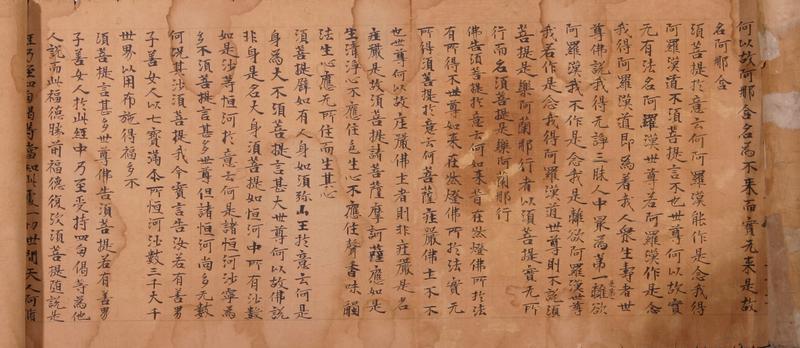 何以故阿那含名為不来而實无来是故
名阿那含
須菩提於意云何阿羅漢能作是念我得
阿羅漢道不須菩提言不也世尊何以故實
无有法名阿羅漢世尊若阿羅漢作是念
我得阿羅漢道即為著我人衆生壽者世
尊佛說我得无諍三昧人中冣為第一離欲
阿羅漢我不作是念我是離欲阿羅漢世尊
我若作是念我得阿羅漢道世尊則不說須
菩提是樂阿蘭那行者以須菩提實无所
行而名須菩提是樂阿蘭那行
佛告須菩提於意云何如来昔在然燈佛所於法
有所得不世尊如来在然燈佛所於法實无
所得須菩提於意云何菩薩莊嚴佛土不不
也世尊何以故莊嚴佛土者則非莊嚴是名
莊嚴是故須菩提諸菩薩摩訶薩應如是
生清淨心不應住色生心不應住聲香味觸
法生心應无所住而生其心
須菩提譬如有人身如須弥山王於意云何是
身為大不須菩提言甚大世尊何以故佛說
非身是名大身須菩提如恒河中所有沙數
如是沙等恒河於意云何是諸恒河沙寧為
多不須菩提言甚多世尊但諸恒河尚多无數
何況其沙須菩提我今實言告汝若有善男
子善女人以七寶滿尒所恒河沙數三千大千
世界以用布施得福多不
須菩提言甚多世尊佛告須菩提若有善男
子善女人於此經中乃至受持四句偈等為他
人說而此福德勝前福德復次須菩提随說是
經乃至四句偈等當知此處一切世間天人阿脩